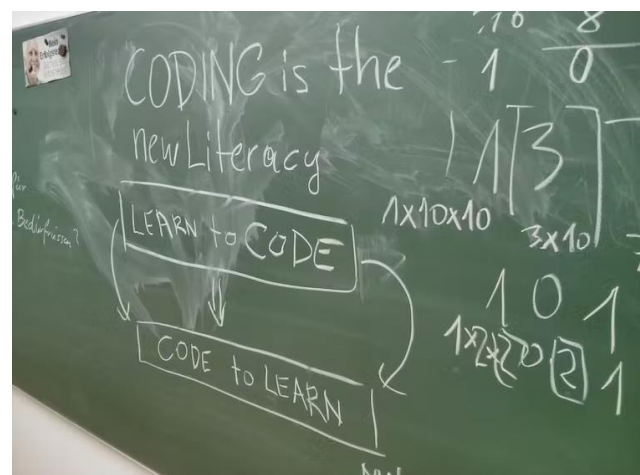 CODING is the
new Literacy
LEARN to CODE
CODE to LEARN
für
Bedürfnissen?
10 8
- 1 0
1 1 3
1x10x10 3x10
1 0 1
1x2x2 0 2 1